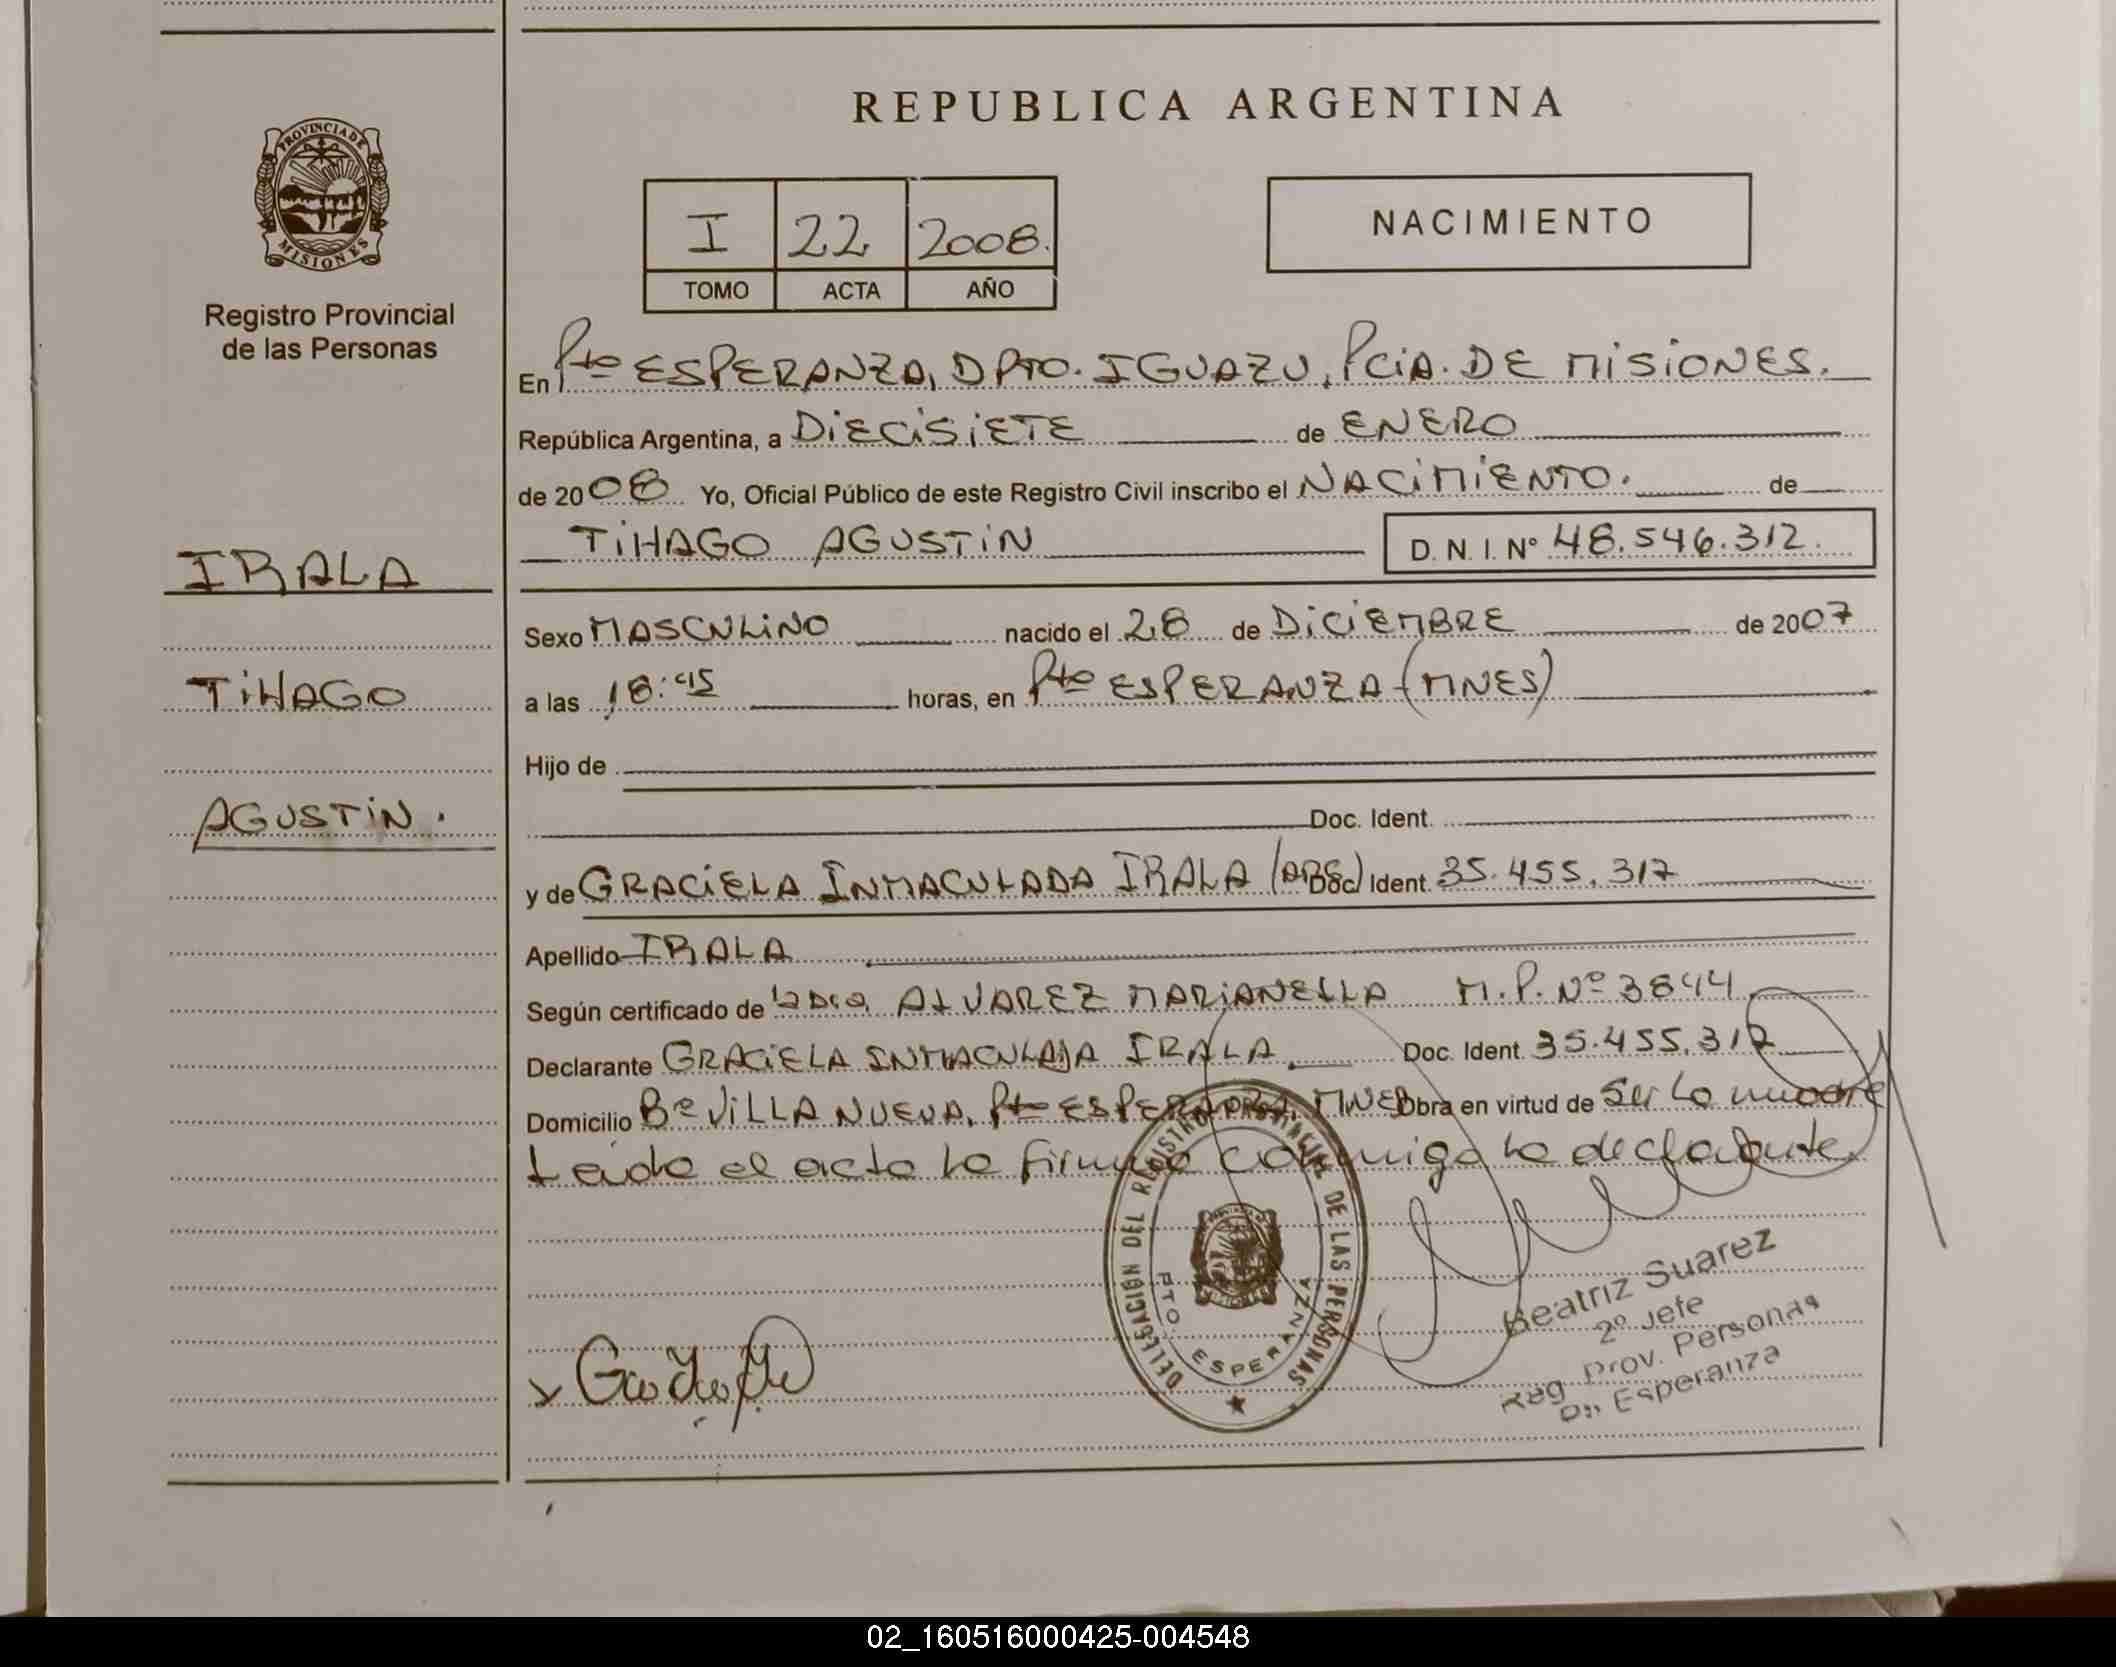 REPUBLICA ARGENTINA
PROVINCIA DE MISIONES
Registro Provincial
de las Personas
I 22 2008.
TOMO ACTA AÑO
NACIMIENTO
En Pto ESPERANZA, DPTO. IGUAZU, PCIA. DE MISIONES.
República Argentina, a DIECISIETE de ENERO
de 2008 Yo, Oficial Público de este Registro Civil inscribo el NACIMIENTO. de
TIHAGO AGUSTIN D.N.I. Nº 48.546.312.
IRALA
TIHAGO
AGUSTIN.
Sexo MASCULINO nacido el 28 de DICIEMBRE de 2007
a las 18:45 horas, en Pto ESPERANZA (MNES)
Hijo de
Doc. Ident.
y de GRACIELA INMACULADA IRALA (ARG) Doc. Ident. 35.455.317
Apellido IRALA
Según certificado de la Dra. ALVAREZ MARIANELLA M.P. Nº 3844
Declarante GRACIELA INMACULADA IRALA. Doc. Ident. 35.455.317
Domicilio Bº VILLA NUEVA, Pto ESPERANZA, MNES Obra en virtud de ser la madre
Leida el acta la firma conmigo la declarante
DELEGACIÓN DEL REGISTRO PROVINCIAL DE LAS PERSONAS
PTO. ESPERANZA
Beatriz Suarez
2º Jefe
Reg. Prov. Personas
Pto Esperanza
02_160516000425-004548